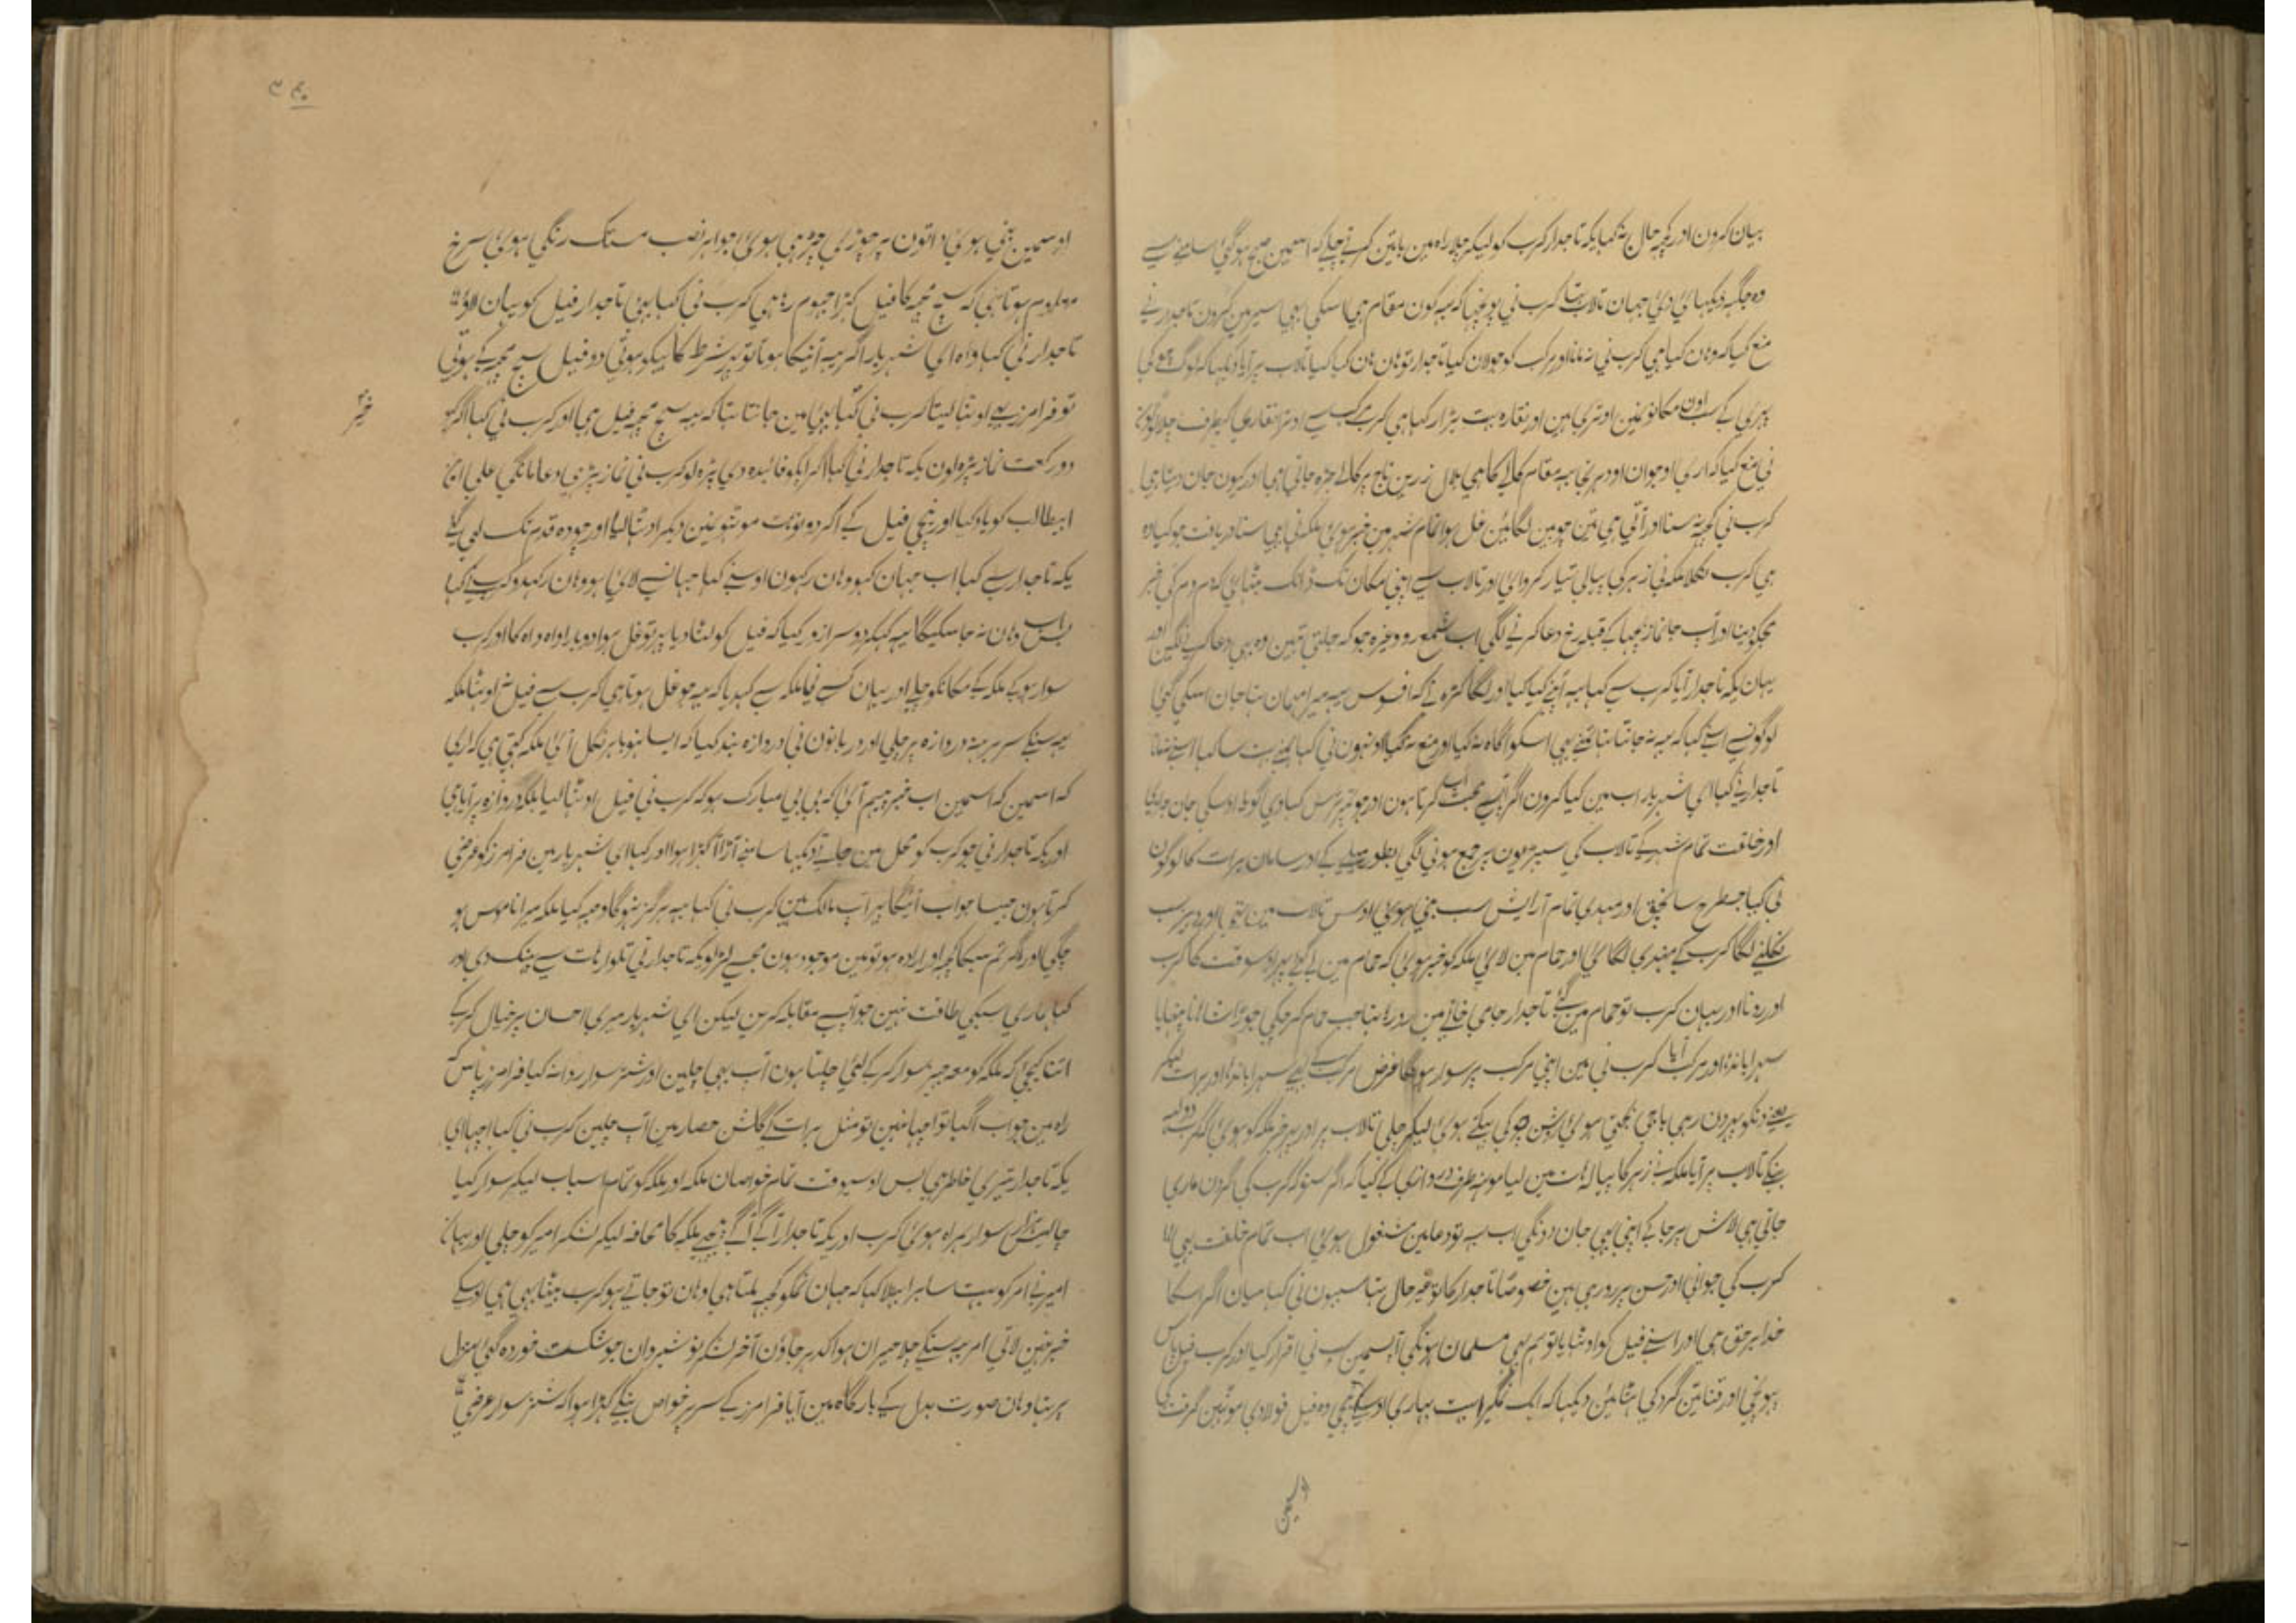 بیان کرون اور کچہ حال نہ کہا یکہ تاجدار کرب کو لیکر چلا راہ مین باتین کرتے چلے کہ اسمین صبح ہوگئی سامنے سے
وہ جگہہ دیکہائی دی جہان تالاب تہا کرب نی پوچہا کہ یہہ کون مقام ہی اسکی بہی سیر مین کرون تاجدار نے
منع کیا کہ وہان کیا ہی کرب نی نہ مانا اور مرکب کو جولان کیا تاجدار تو ہان ہان کیا کیا تالاب پر آیا دیکہا کہ لوگ
پہری کے سب اون مکانونمین اوتری ہین اور نقارہ بہت بڑا رکہا ہی کرب مرکب سے اوترا نقاری کیطرف چلا
نی منع کیا کہ اری او جوان اودہر نجا یہہ مقام کلالے کا ہی جمال زرین تاج پر کلالے چڑہ جاتی ہی اور کیون جان دیتا ہی
کرب نی کچہہ نہ سنا اور آتی ہی تین چوبین لگائین غل ہوا تمام شہر مین خبر ہوئی ملکہ نی بہی سنا دریافت جو کیا وہ
ہی کرب نکلا ملکہ نی زہر کی پیالی تیار کروائی اور تالاب سے اپنی مکان تک ڈاک بٹہائی کہ دم دم کی خبر
مجکو دینا اور آپ جانماز بچہا کے قبلہ رخ دعا کرنے لگی اب شمع رو وغیرہ جو کہ جلتی تہین وہ بہی دعا کرنے لگین اور
یہان یکہ تاجدار آیا کرب سے کہا یہہ آپنے کیا کیا اور لگا کڑہنے کہ افسوس یہہ میرا مہمان تہا جان اسکی گئی
لوگونسے اسنے کہا کہ یہہ نہ جانتا تہا تمنے بہی اسکو آگاہ نہ کیا اور منع نہ کیا اونہون نی کہا ہمنے بہت سا کہا اسنے نمانا
تاجدار نے کہا ای شہریار اب مین کیا کرون اگر آپسے محبت کرتا ہون اور جو
اور خلقت تمام شہر کے تالاب کی سیرہیون پر جمع ہونی لگی بطور میلے کے اور سامان برات کا لوگون
نی کیا جسطرح ساچق اور مہندی تمام آرایش سب چنی ہوئی اوس تالاب مین تہی اور دوپہر سب
نکلنے لگا کرب کے مہندی لگائی اور حمام مین لائی ملکہ کو خبر ہوئی کہ حمام مین لے گئے پہر اوسوقت کا کرب
اور رونا اور یہان کرب تو حمام مین گئے تاجدار جامی خانے مین رو رہا تہا جب حمام کر چکی جوڑا شاہانا پنہایا
سہرا باندہا اور مرکب آیا کرب نی مین اپنی مرکب پر سوار ہونگا غرض مرکب کے بہی سہرا باندہا اور برات لیکر
بنکے تالاب پر آیا ملکہ نے زہر کا پیالہ ہات مین لیا مونہہ طرف دروازی کے کیا کہ اگر سنو کہ کرب کی گردن ماری
جاتی ہی لاش پر جا کے اپنی بہی جان دونگی اب یہہ تو دعا مین مشغول ہوئی اب تمام خلقت بہی
کرب کی جوانی اور حسن پر رو رہی ہین خصوصاً تاجدار کا تو غیر حال تہا سبہون نی کہا میان اگر اسکا
خدا برحق ہی اور اسنے فیل کو اوٹہایا تو ہم بہی مسلمان ہونگی اسمین سب نی اقرار کیا اور کرب فیل پاس
پہونچی اور قناتین گرد کی ہٹائین دیکہا کہ ایک نمگیرا بہت بہاری اوسکے نیچی وہ فیل فولادی
اوسمین
اوسمین چنی ہوئی دانتون پہ چوڑی چڑہی ہوئی جواہر نصب مستک رنگی ہوئی سرخ
معلوم ہوتا ہی کہ سچ مچ کا فیل کہڑا جہوم رہا ہی کرب نی کہا بہی تاجدار فیل کو یہان لاؤ
تاجدار نی کہا واہ ای شہریار اگر یہہ آنیکا ہوتا تو یہ شرط کاہیکو ہوتی دو فیل سچ مچ کے ہوتی
تو فرامرز ہی اوٹہا لیتا کرب نی کہا بہی مین جانتا تہا کہ یہہ سچ مچ فیل ہی اور کرب نی کہا اگر کہو
دو رکعت نماز پڑہ لون یکہ تاجدار نی کہا اگر آپکو فائدہ دی پڑہ لو کرب نی نماز پڑہی دعا مانگی علی ابن
ابیطالب کو یاد کیا اور نیچی فیل کے آکر دونو ہات دیکر اوٹہا لیا اور چودہ قدم تک لے گئے
یکہ تاجدار سے کہا اب جہان کہو وہان رکہون اوسنے کہا جہانسے لائی ہو وہان رکہدو کرب نے کہا
بس اب وہان نہ جا سکیگا یہہ کہکر دوسرا زور کیا کہ فیل کو لٹا دیا پہر تو غل ہوا دوبارا واہ واہ کا اور کرب
سوار ہوکے ملکہ کے مکانکو چلے اور یہان کسے نی ملکہ سے کہدیا کہ یہہ جو غل ہوتا ہی کرب سے فیل نہ اوٹہا ملکہ
یہہ سنکے سر برہنہ دروازہ پر چلی اور دربانون نی دروازہ بند کیا کہ ایسا نہو باہر نکل آئی ملکہ کہتی ہی کہ اری
کہ اسمین کہ اسمین اب خبر پیہم آئی کہ بی بی مبارک ہو کہ کرب نی فیل اوٹہا لیا بلکہ دروازہ پر آیا ہی
اور یکہ تاجدار نی جو کرب کو محل مین جاتے دیکہا سامنے آڑا آ کہڑا ہوا اور کہا ای شہریار مین فرامرز کو عرضی
کرتا ہون جیسا جواب آئیگا پہر آپ مالک ہین کرب نی کہا یہہ ہرگز نہوگا وجہ کیا ملکہ میرا ناموس ہو
چکی اور اگر تم سبکا کچہہ اور ارادہ ہو تو مین موجود ہون مجسے لڑ لو یکہ تاجدار نی تلوار ہات سے پہینک دی اور
کہا ہماری سبکی طاقت نہین جو آپسے مقابلہ کرین لیکن ای شہریار میری احسان پر خیال کرکے
اتنا کیجی کہ ملکہ کو معہ جہیز سوار کرکے لئی چلتا ہون آپ بہی چلین اور شتر سوار روانہ کیا فرامرز پاس کہ
راہ مین جواب آگیا تو اچہا نہین تو مثل برات کے گلشن حصار مین آپ چلین کرب نی کہا اچہا ای
یکہ تاجدار تیری خاطر ہی پس اوسیوقت تمام خواصان ملکہ اور ملکہ کو تمام اسباب لیکر سوار کیا
چالیس ہزار سوار ہمراہ ہوئی کرب اور یکہ تاجدار آگے آگے پیچہے ملکہ کا محافہ لیکر لشکر امیر کو چلی اور یہان
امیر نے امر کو بہت سا برا بہلا کہا کہ جہان تمکو کچہہ ملتا ہی وہان تو جاتے ہو کرب بیٹا بہی ہی اوسکے
خبر نہین لاتی امر یہہ سنکے چلا حیران ہوا کدہر جاؤن آخر لشکر نوشیروان جو شکست خوردہ کئی منزل
پر تہا وہان صورت بدل کے بارگاہ مین آیا فرامرز کے سر پر خواص بنکے کہڑا ہوا کہ شتر سوار عرضی